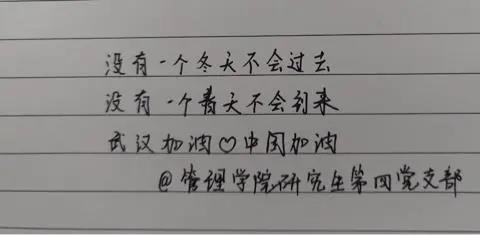 没有一个冬天不会过去
没有一个春天不会到来
武汉加油♡中国加油
@管理学院研究生第四党支部